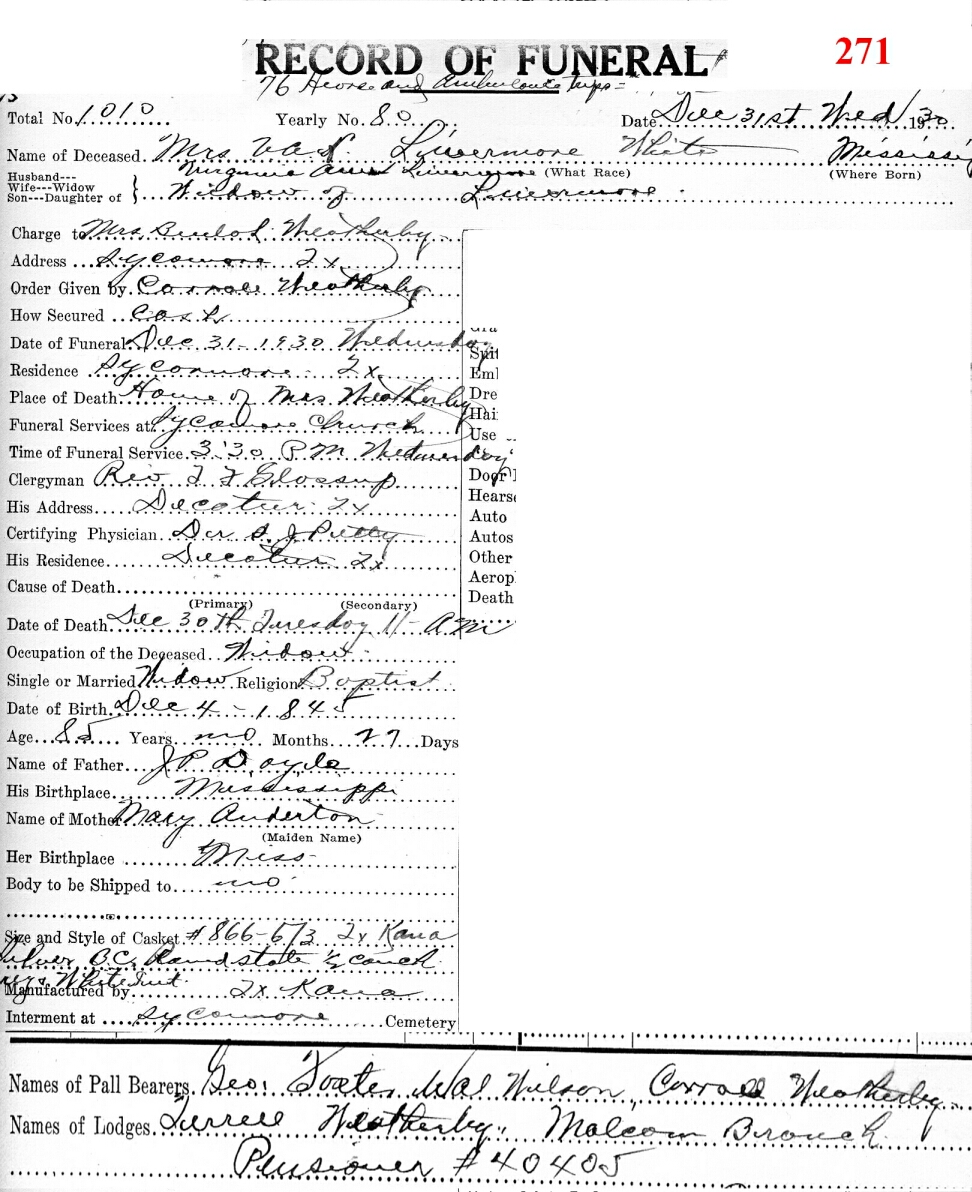 RECORD OF FUNERAL 271
76 Hearse and Ambulance trips
Total No. 1010 Yearly No. 80 Date Dec 31st Wed 1930
Name of Deceased Mrs V a L Livermore White Mississi
Virginia Ann Livermore (What Race) (Where Born)
Husband---
Wife---Widow
Son---Daughter of } Widow of Livermore
Charge to Mrs Beulah Weatherby
Address Sycamore Tx
Order Given by Carrall Weatherby
How Secured Cash
Date of Funeral Dec 31-1930 Wednesday
Residence Sycamore Tx
Place of Death Home of Mrs Weatherby
Funeral Services at Sycamore Church
Time of Funeral Service 3:30 P.M. Wednesday
Clergyman Rev T F Glossup
His Address Decatur Tx
Certifying Physician Dr S. J Petty
His Residence Decatur Tx
Cause of Death
(Primary) (Secondary)
Date of Death Dec 30th Tuesday 11- AM
Occupation of the Deceased Widow
Single or Married Widow Religion Baptist
Date of Birth Dec 4-1845
Age 85 Years no Months 27 Days
Name of Father J P Doyle
His Birthplace Mississippi
Name of Mother Mary Anderton
(Maiden Name)
Her Birthplace Miss
Body to be Shipped to no
Size and Style of Casket #866-6/3 Tx Kana
Silver B.C. state ½ couch
White Int.
Manufactured by Tx Kana
Interment at Sycamore Cemetery
Suit
Eml
Dre
Hai
Use
Door
Hearse
Auto
Autos
Other
Aerop
Death
Names of Pall Bearers Geo. Wal Wilson, Carrall Weatherby
Names of Lodges Turrell Weatherby, Malcom Branch
Pensioner #40405